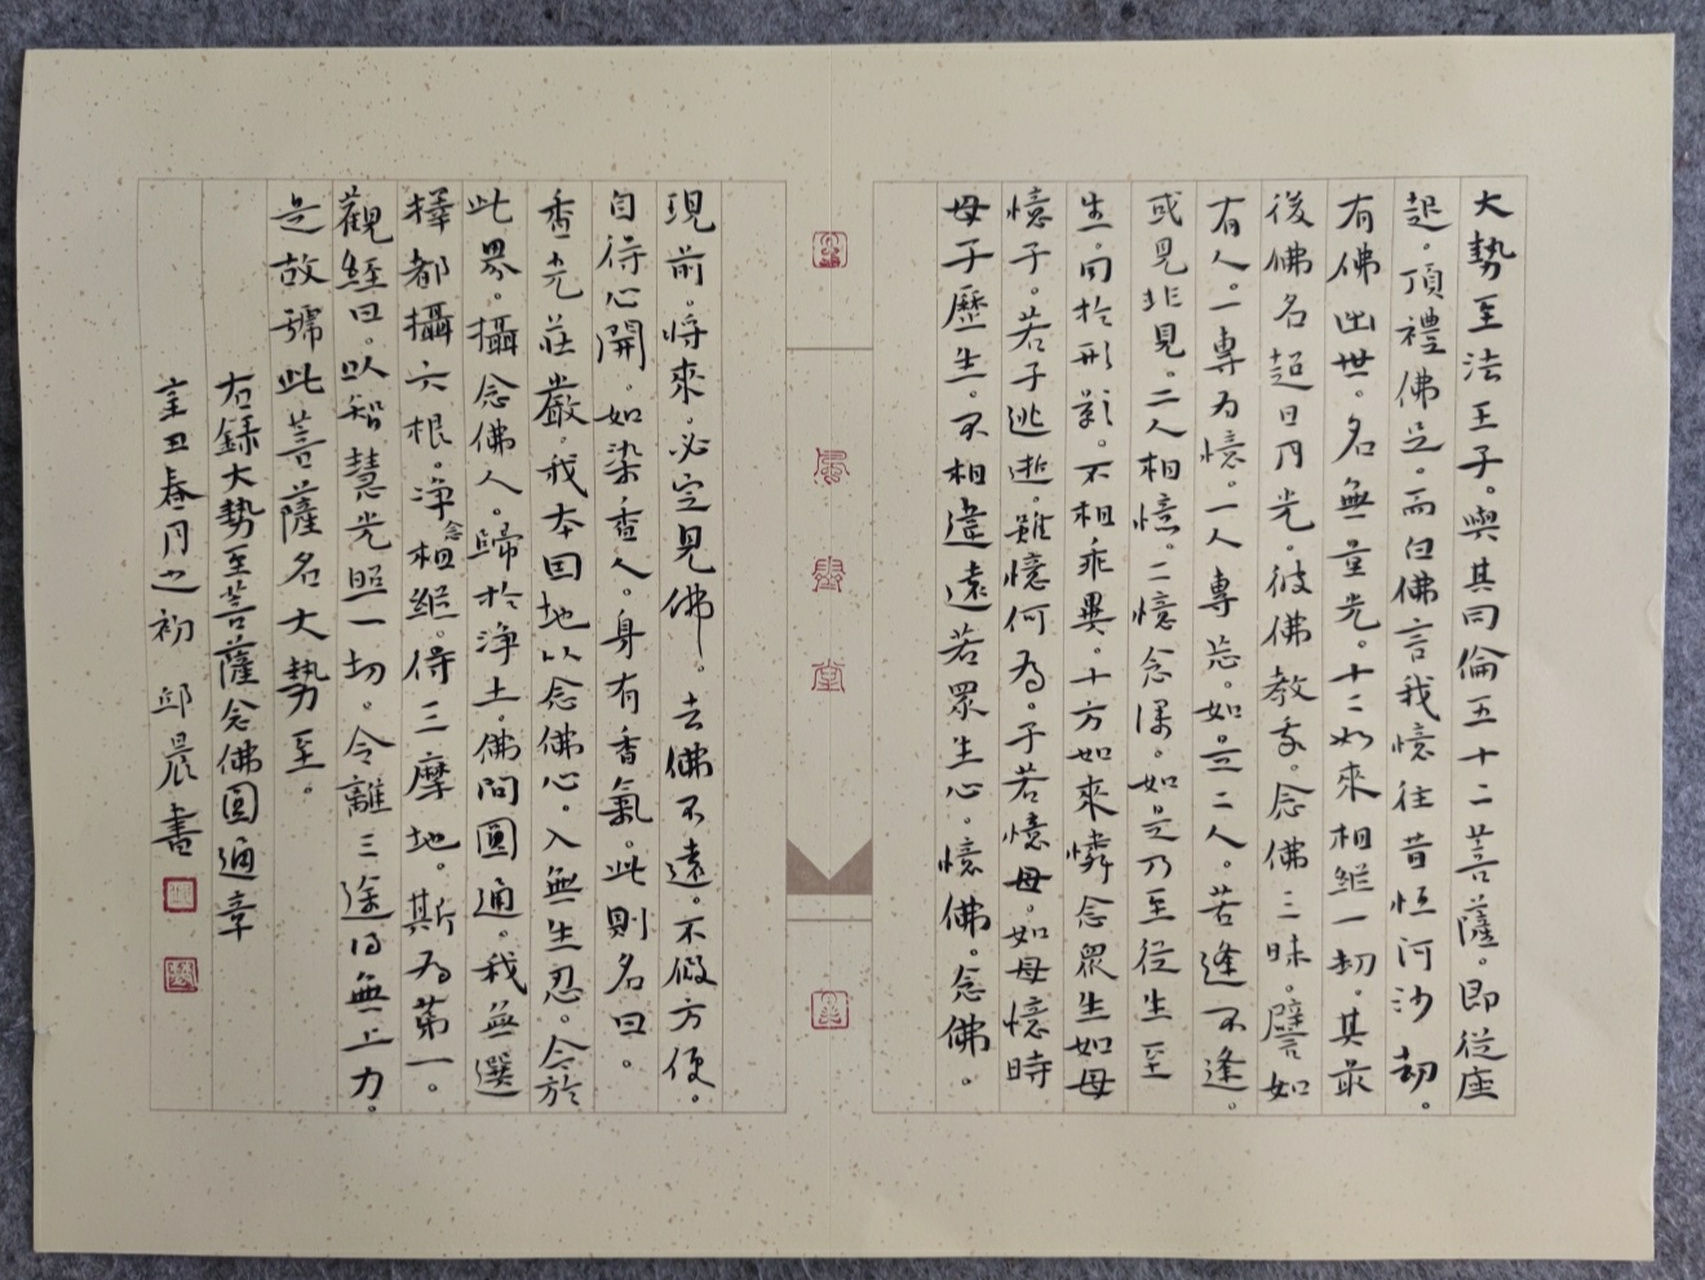 大勢至法王子。與其同倫五十二菩薩。即從座
起。頂禮佛足。而白佛言我憶往昔恒河沙劫。
有佛出世。名無量光。十二如來相繼一劫。其最
後佛名超日月光。彼佛教我。念佛三昧。譬如
有人。一專為憶。一人專忘。如是二人。若逢不逢。
或見非見。二人相憶。二憶念深。如是乃至從生至
生。同於形影。不相乖異。十方如來憐念眾生如母
憶子。若子逃逝。雖憶何為。子若憶母。如母憶時
母子歷生。不相違遠若眾生心。憶佛。念佛。
現前。將來。必定見佛。去佛不遠。不假方便。
自得心開。如染香人。身有香氣。此則名曰。
香光莊嚴。我本因地以念佛心。入無生忍。今於
此界。攝念佛人。歸於淨土。佛問圓通。我無選
擇都攝六根。淨念相繼。得三摩地。斯為第一。
觀經曰。以智慧光照一切。令離三途得無上力。
是故號此菩薩名大勢至。
右録大勢至菩薩念佛圓通章
辛丑春月之初 邱晨書
風舉堂